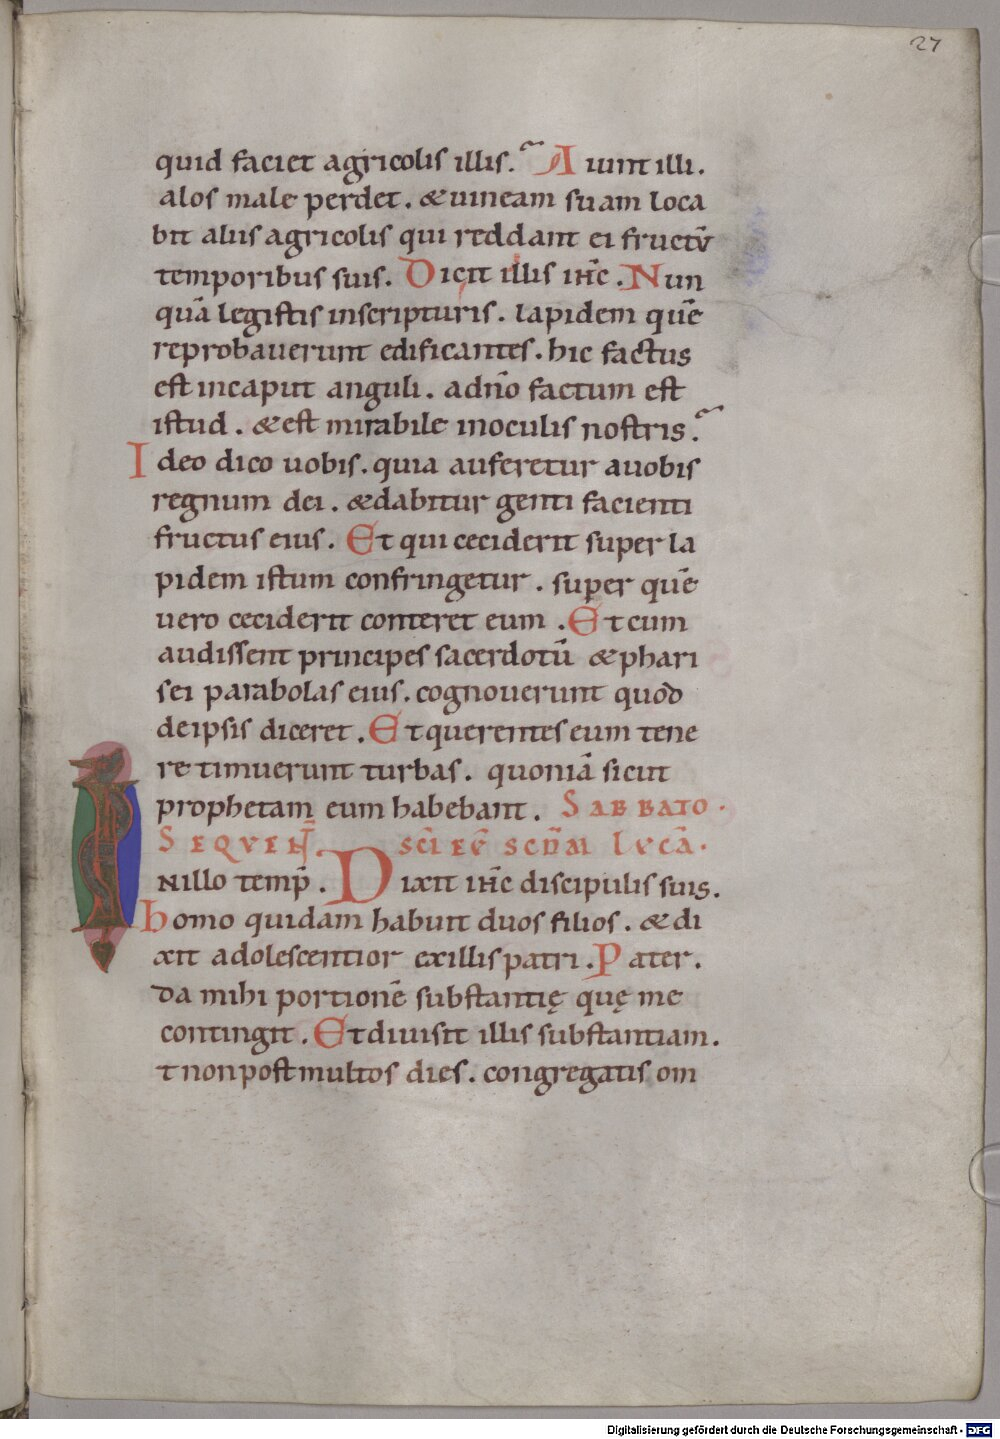 27
quid faciet agricolis illis. Aiunt illi.
alos male perdet. & uineam suam loca
bit aliis agricolis qui reddant ei fructū
temporibus suis. Dicit illis ih̄c. Nun
quā legistis inscripturis. lapidem quē
reprobauerunt edificantes. hic factus
est incaput anguli. adn̄o factum est
istud. & est mirabile inoculis nostris.
Ideo dico uobis. quia auferetur auobis
regnum dei. & dabitur genti facienti
fructus eius. Et qui ceciderit super la
pidem istum confringetur. super quē
uero ceciderit conteret eum. Et cum
audissent principes sacerdotū & phari
sei parabolas eius. cognouerunt quod
deipsis diceret. Et querentes eum tene
re timuerunt turbas. quoniā sicut
prophetam eum habebant. SABBATO.
SEQUEN̄T SCĪ EV̄ SCD̄M LVCĀ.
INillo temp̄. Dixit ih̄c discipulis suis.
homo quidam habuit duos filios. & di
xit adolescentior exillis patri. Pater.
da mihi portionē substantię quę me
contingit. Et diuisit illis substantiam.
t nonpost multos dies. congregatis om
Digitalisierung gefördert durch die Deutsche Forschungsgemeinschaft - DFG